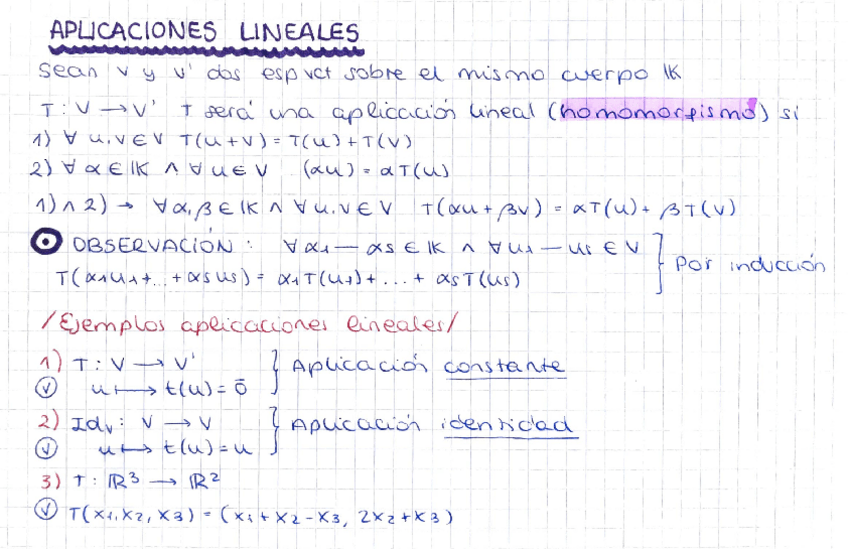 APLICACIONES LINEALES
Sean V y V' dos esp vct sobre el mismo cuerpo IK
T: V → V' T será una aplicación lineal (homomorfismo) si
1) ∀ u,v ∈ V T(u+v) = T(u)+T(v)
2) ∀ α ∈ IK ∧ ∀ u ∈ V (αu) = αT(u)
1) ∧ 2) → ∀ α, β ∈ IK ∧ ∀ u,v ∈ V T(αu + βv) = αT(u) + βT(v)
OBSERVACIÓN: ∀ α1 — αs ∈ IK ∧ ∀ u1 — us ∈ V
T(α1u1+...+αsus) = α1T(u1)+...+ αsT(us) } Por inducción
/Ejemplos aplicaciones lineales/
1) T: V → V' } Aplicación constante
u ⟼ t(u) = 0̄
2) Idv: V → V } Aplicación identidad
u ⟼ t(u) = u
3) T: ℝ³ → ℝ²
T(x1, x2, x3) = (x1 + x2 - x3, 2x2 + x3)